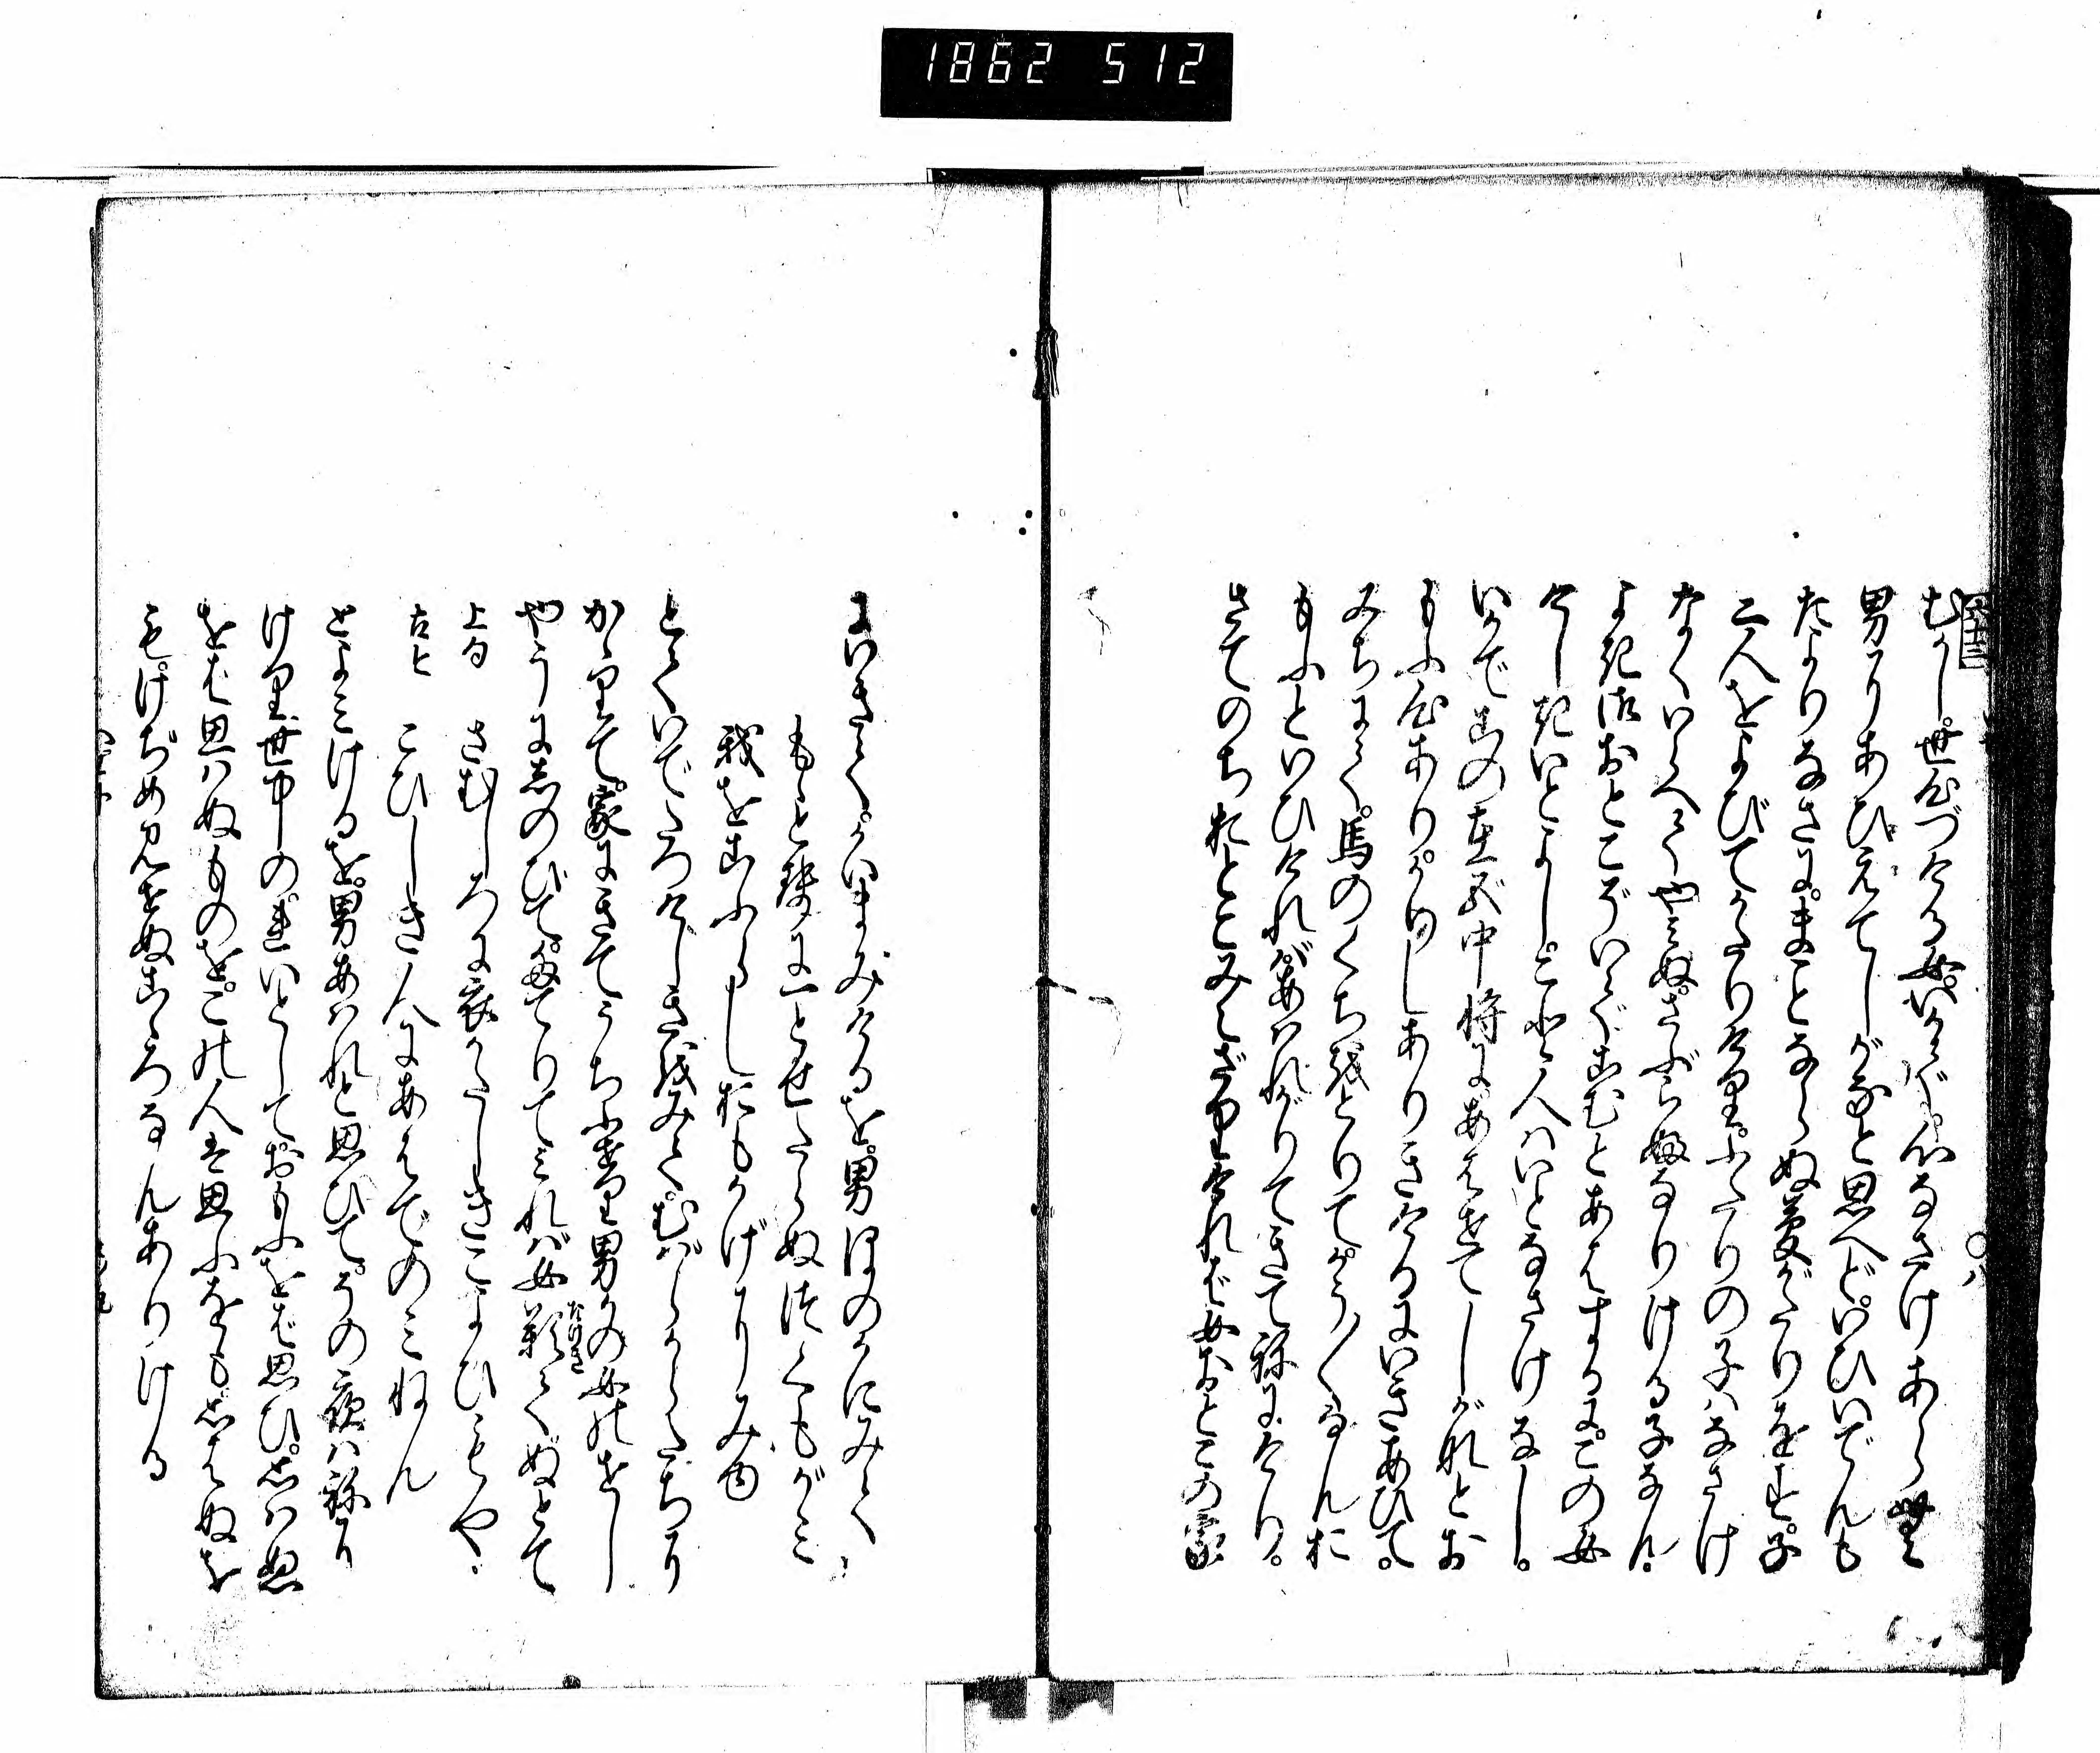 1862 512
むかし。世心づける女。いかで。心なさけあらむ
男にあひえてしがなと思へど。いひいでんも
たよりなさに。まことならぬ夢がたりをす。子
三人をよびてかたりけり。ふたりの子ハなさけ
なくいらへてやミぬ。さぶらふなりける子なん。
よき御おとこぞいでこむとあはするに。この女
けしきいとよし。こと人ハいとなさけなし。
いかでこの在五中将にあはせてしがなとお
もふ心あり。かりしありきけるにいきあひて。
みちにて。馬のくちをとりて。かう／＼なんお
もふといひけれバ。あハれがりてきて祢にけり。
さてのちおとこみえざりけれバ。女おとこの家
にいきて。かいまみけるを。男ほのかにみて
もゝとせに一とせたらぬつくもがミ
我をこふらしおもかげにみゆ
とていでたつけしきをみて。むばらからたちに
かゝりて。家にきてうちふせり。男かの女のせし
やうにしのびて。たてりてミれバ。女歎てぬとて
なげき
上句　さむしろに衣かたしきこよひもや
古と　こひしき人にあはでのミねん
とよミけるを。男あハれと思ひて。その夜ハ祢に
けり。世中のれいとして。おもふをば思ひ。おもハぬ
をば思ハぬものを。この人は思ふをも。おもはぬを
も。けぢめ見せぬこゝろなんありける